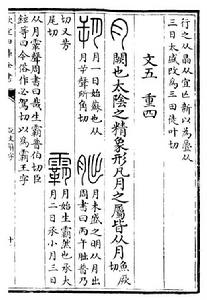 行之从晶从宜亡新以為疊从
三日太盛改為三田徒叶切
文五 重四
月 闕也太陰之精象形凡月之屬皆从月 魚厥切
朔 月一日始蘇也从月屰聲所角切
朏 月未盛之明从月出周書曰丙午朏普乃
切又芳尾切
霸 月始生霸然也承大月二日承小月三日
从月䨣聲周書曰哉生霸普伯切臣
鉉等曰今俗作必駕切以為霸王字